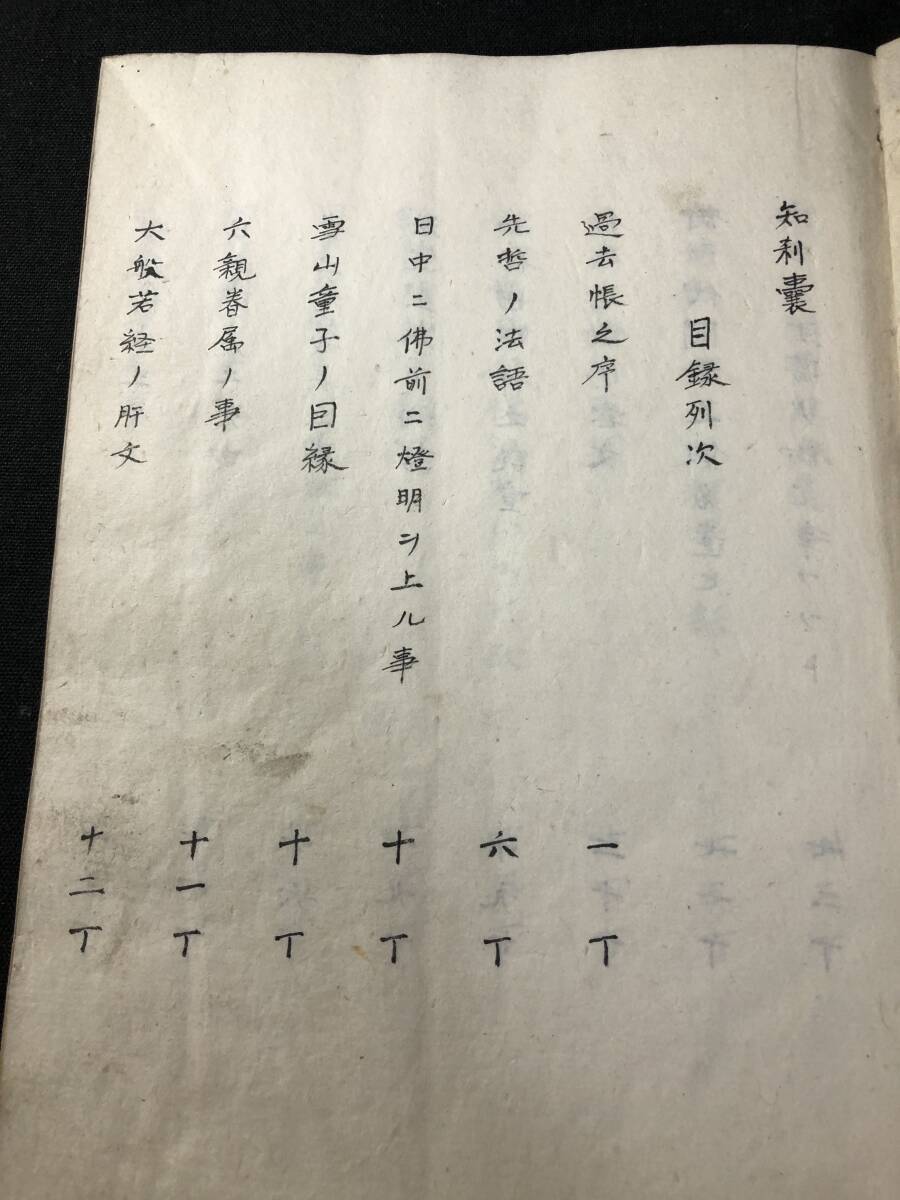 知利嚢
目録列次
過去帳之序 一丁
先哲ノ法語 六丁
日中ニ佛前ニ燈明ヲ上ル事 十丁
雪山童子ノ因縁 十丁
六親眷属ノ事 十一丁
大般若経ノ肝文 十二丁